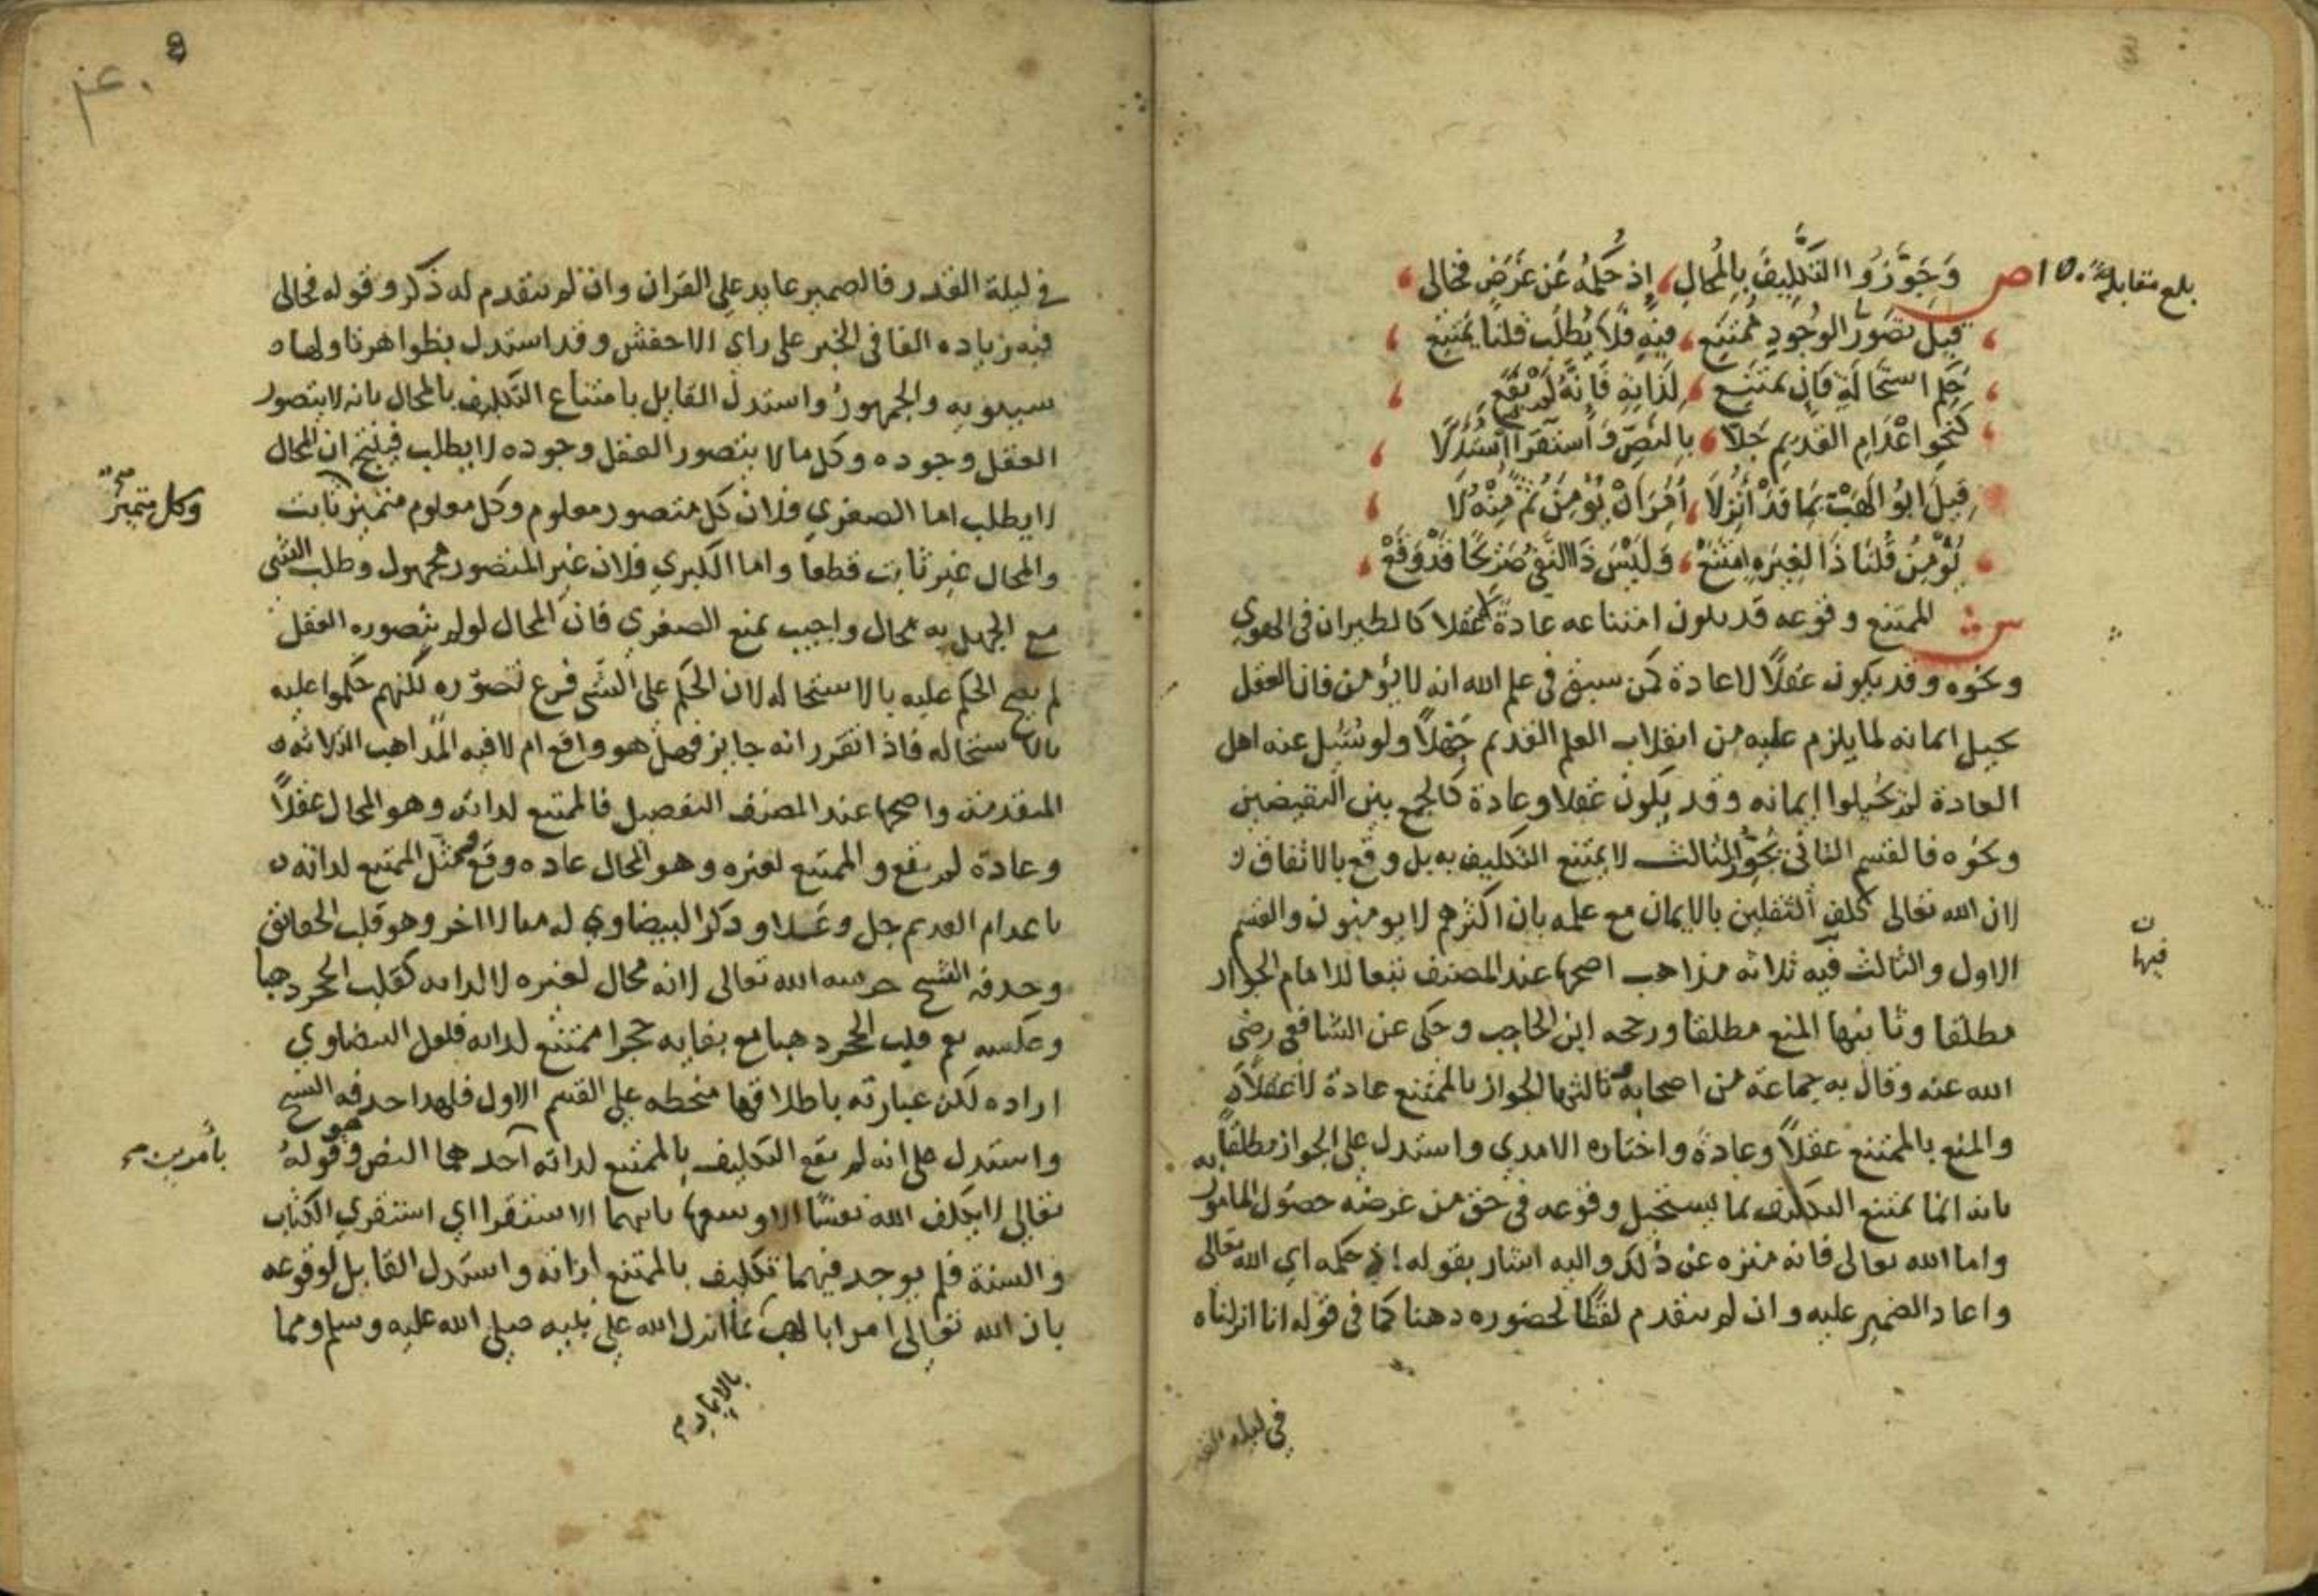 بلغ مقابلة
ص وَجَوَّزُوا التَّكْلِيفَ بِالْمُحَالِ، إذ حُكْمُهُ عَنْ غَرَضٍ فخالى
قِيلَ تَصَوُّرُ الوُجُودِ مُمْتَنِعْ، فيهِ فَلَا يُطْلَبُ قلنا يمتنع
حكم استحالةٍ فَإِن يمتنع، لِذَاتِهِ فَإِنَّهُ لَمْ يَقَعْ
كنحو اعدام القديم جَلَّا، بِالنَّصِّ وَاستقرا استُدِلَّا
قِيلَ ابُو لَهَبْ بِمَا قَدْ أُنْزِلَا، أُمِرَ أَنْ يُؤْمِنَ ثُمَّ مِنْهُ لَا
يُؤْمِنُ قُلْنَا ذَا لِغَيْرِهِ امتَنَعْ، وَلَيْسَ ذَا النَّصُّ صَرِيحًا قَدْ وَقَعْ
ش الممتنع وقوعه قد يكون امتناعه عادةً لا عقلا كالطيران في الهوى
ونحوه وقد يكون عقلًا لا عادة كمن سبق في علم الله انه لا يؤمن فان العقل
يحيل ايمانه لما يلزم عليه من انقلاب العلم القديم جَهْلًا ولو سُئِل عنه اهل
العادة لم يحيلوا ايمانه وقد يكون عقلا وعادة كالجمع بين النقيضين
ونحوه فالقسم الثاني الثالث لا يمتنع التكليف به بل وقع بالاتفاق
لان الله تعالى كلف الثقلين بالايمان مع علمه بان اكثرهم لا يومنون والقسم
الاول والثالث فيه ثلاثه مذاهب اصحها عند المصنف تبعا للامام الجواز
فيها
مطلقا وثانيها المنع مطلقا ورجحه ابن الحاجب وحكى عن الشافعي رضي
الله عنه وقال به جماعة من اصحابه ثالثها الجواز بالممتنع عادة لا عقلًا
والمنع بالممتنع عقلًا وعادة واختاره الامدي واستدل على الجواز مطلقًا
بانه انما يمتنع التكليف بما يستحيل وقوعه في حق من غرضه حصول المامور به
واما الله تعالى فانه منزه عن ذلك واليه اشار بقوله إذ حكمه اي الله تعالى
واعاد الضمير عليه وان لم يتقدم لفظًا لحضوره ذهنا كما في قوله انا انزلناه
في ليلة القدر
في ليلة القدر فالضمير عايد على القران وان لم يتقدم له ذكر وقوله فخالى
فيه زياده الفا في الخبر على راي الاخفش وقد استدل بظواهر تاولها
سيبويه والجمهور واستدل القايل بامتناع التكليف بالمحال بانه لا يتصور
العقل وجوده وكل ما لا يتصور العقل وجوده لا يطلب فينتج ان المحال
لا يطلب اما الصغري فلان كل متصور معلوم وكل معلوم متميز ثابت
وكل متميز صح
والمحال غير ثابت قطعا واما الكبري فلان غير المتصور مجهول وطلب الشي
مع الجهل به محال واجيب بمنع الصغري فان المحال لو لم يتصوره العقل
لم يصح الحكم عليه بالاستحاله لان الحكم على الشي فرع تصوّره لكنهم حكموا عليه
بالاستحاله فاذا تقرر انه جايز فهل هو واقع ام لا فيه المذاهب الثلاثه
المتقدمة واصحها عند المصنف التفصيل فالممتنع لذاته وهو المحال عقلًا
وعادة لم يقع والممتنع لغيره وهو المحال عاده وقع ومثل الممتنع لذاته
باعدام القديم جل وعلا وذكر البيضاوي له مثالا اخر وهو قلب الحقائق
وحذفه الشيخ حرسه الله تعالى لانه محال لغيره لا لذاته كقلب الحجر ذهبا
وعكسه نعم قلب الحجر ذهبا مع بقايه حجرا ممتنع لذاته فلعل البيضاوي
اراده لكن عبارته باطلاقها منحطه على القسم الاول فلهذا حذفه الشيخ
واستدل على انه لم يقع التكليف بالممتنع لذاته احدهما النص وهو قوله
بامرين صح
تعالى لا يكلف الله نفسًا الا وسعها ثانيهما الاستقرا اي استقري الكتاب
والسنة فلم يوجد فيهما تكليف بالممتنع لذاته واستدل القايل لوقوعه
بان الله تعالى امر ابا لهب بما انزل الله على نبيه صلى الله عليه وسلم ومما